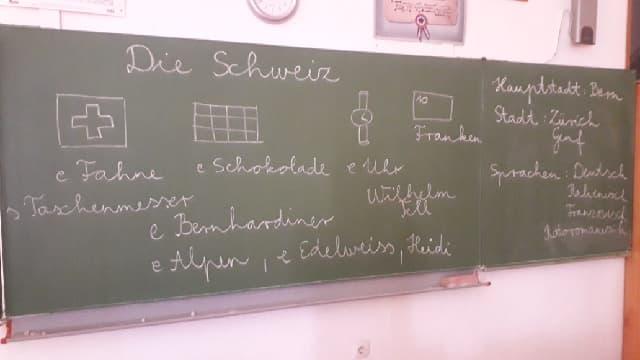 Die Schweiz
10
Franken
e Fahne
e Schokolade
e Uhr
s Taschenmesser
Wilhelm
Tell
e Bernhardiner
e Alpen, e Edelweiss, Heidi
Hauptstadt: Bern
Stadt: Zürich
Genf
Sprachen: Deutsch
Italienisch
Französisch
Rätoromanisch